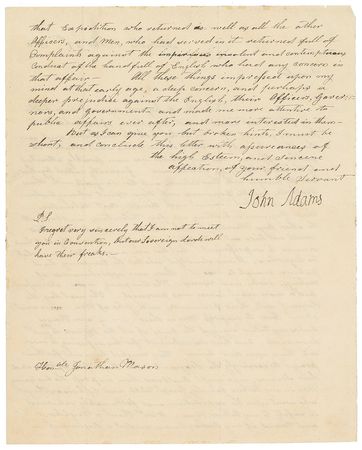 that Expedition who returned as well as all the other
Officers, and Men, who had served in it returned full of
Complaints against the imperious insolent and contemptuous
Conduct of the handfull of English who had any concern in
that affair — All these things impressed upon my
mind at that early age, a deep concern, and perhaps a
deeper prejudice against the English, their Officers, Gover-
nors, and governments and made me more attentive to
public affairs ever after, and more interested in them—
But as I can give you but broken hints, I must be
short, and conclude this letter with assurances of
the high Esteem, and sincere
affection, of your friend and
humble Servant
John Adams
P.S.
I regret very sincerely that I am not to meet
you in Convention, but our Sovereign Lords will
have their freaks.—
Honble Jonathan Mason